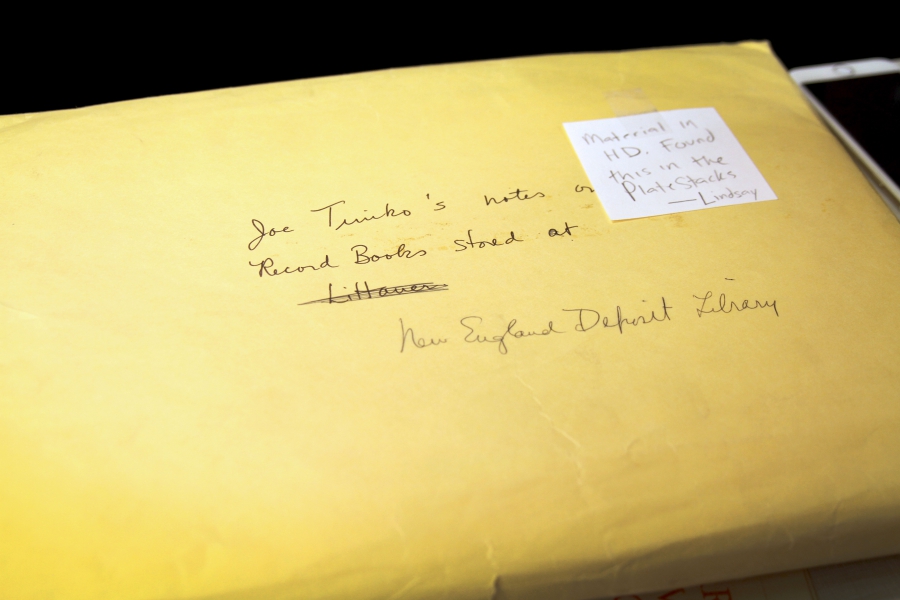 Joe Timko's notes on
Record Books stored at
Littauer
New England Deposit Library
Material in
HD. Found
this in the
Plate Stacks
—Lindsay